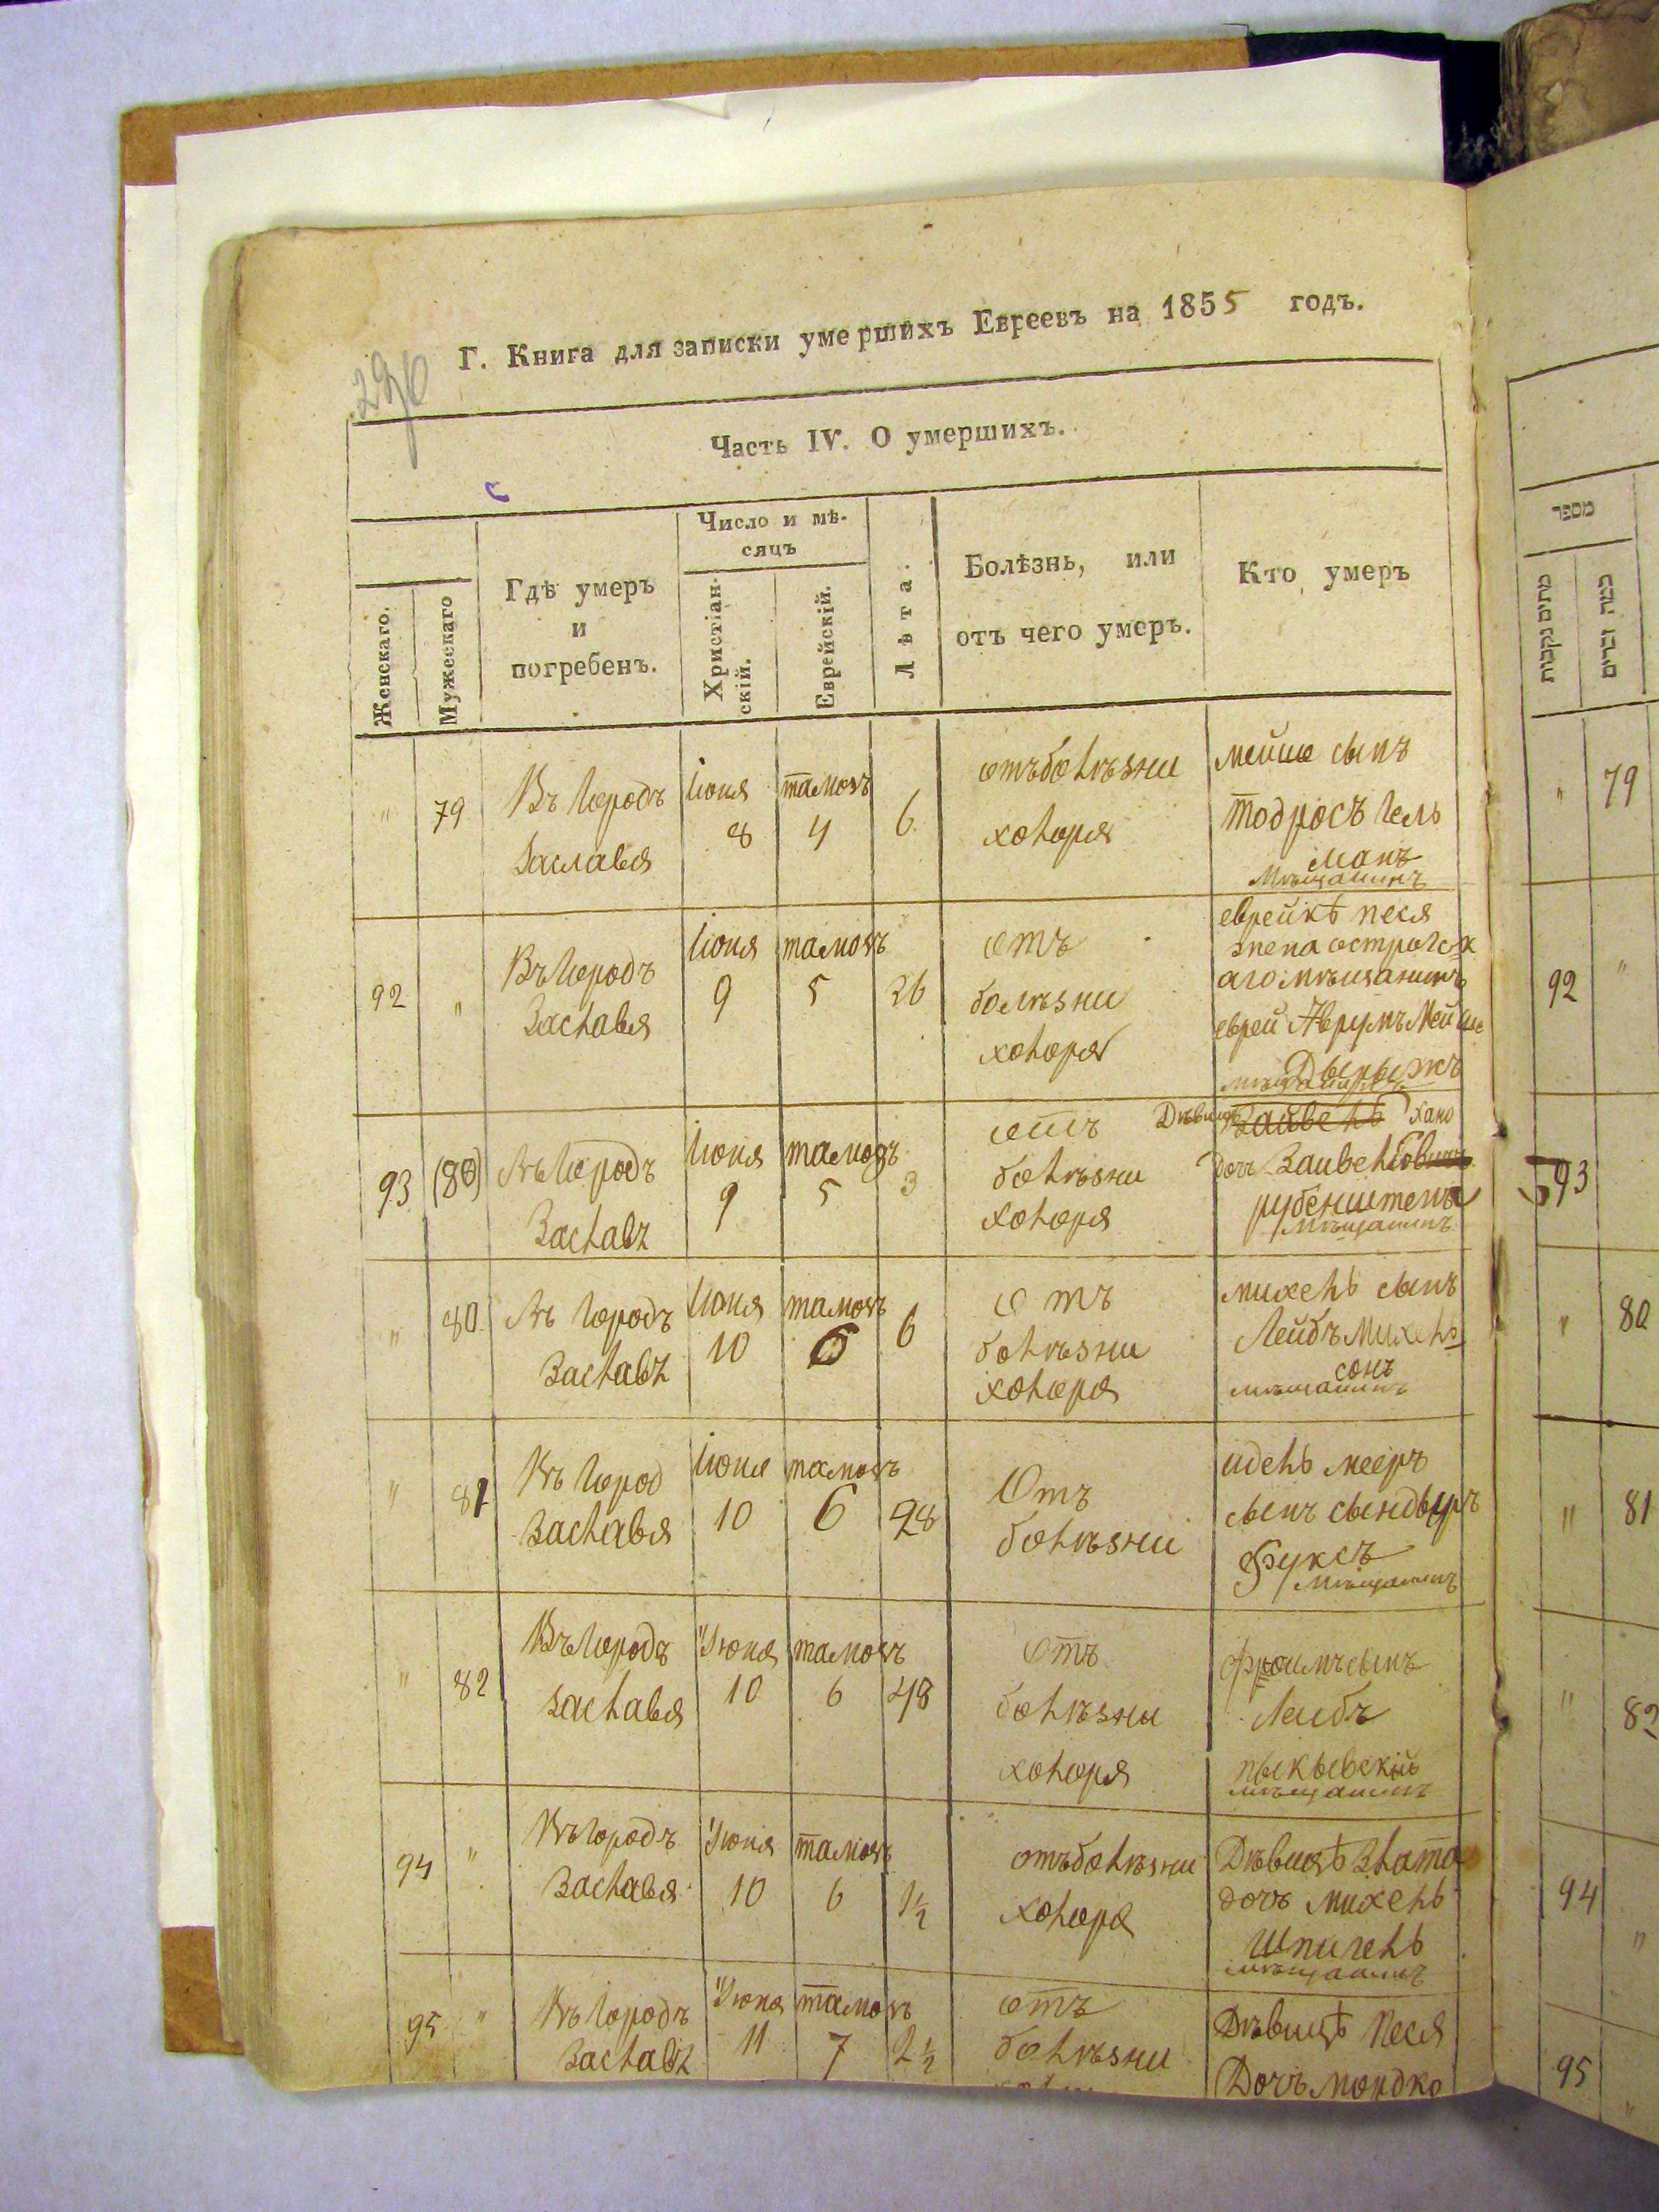 290
Г. Книга для записки умершихъ Евреевъ на 1855 годъ.
Часть IV. О умершихъ.
Женскаго.
Мужескаго
Гдѣ умеръ
и
погребенъ.
Число и мѣ-
сяцъ
Христіан-
скій.
Еврейскій.
Лѣта.
Болѣзнь, или
отъ чего умеръ.
Кто умеръ
" 79
Въ городъ
Заславя
Іюня
8
тамозъ
4
6
отъ болѣзни
холоря
мейше сынъ
тодросъ гель
манъ
мѣщанинъ
92 "
Въ городъ
Заславя
Іюня
9
тамозъ
5
26
отъ
болѣзни
холоря
еврейкѣ песя
острогск
аго мѣщанинъ
еврей Аврумъ Мейше
мѣщанинъ
93 (80)
Въ городъ
Заславъ
Іюня
9
тамозъ
5
3
отъ
болѣзни
холоря
Дѣвицѣ Зайвель хано
дочъ Зайвель
рубенштенъ
мѣщанинъ
" 80
Въ городъ
Заславъ
Іюня
10
тамозъ
6
6
отъ
болѣзни
холоря
михель сынъ
Лейбъ Михель
сонъ
мѣщанинъ
" 81
Въ город
Заславя
Іюня
10
тамозъ
6
98
Отъ
болѣзни
идель мееръ
сынъ
Фуксъ
мѣщанинъ
" 82
Въ городъ
Заславя
Іюня
10
тамозъ
6
48
отъ
болѣзни
холоря
фроимъ сынъ
Леибъ
мѣщанинъ
94 "
Въ городъ
Заславя
Іюня
10
тамозъ
6
1½
отъ болѣзни
холоря
Дѣвицѣ Злата
дочъ михель
шпигель
мѣщанинъ
95 "
Въ городъ
Заславъ
Іюня
11
тамозъ
7
2½
отъ
болѣзни
Дѣвицѣ Песя
Дочъ мордко
מספר
מתים נקבות
זכרים
" 79
92 "
93
" 80
" 81
" 82
94 "
95 "